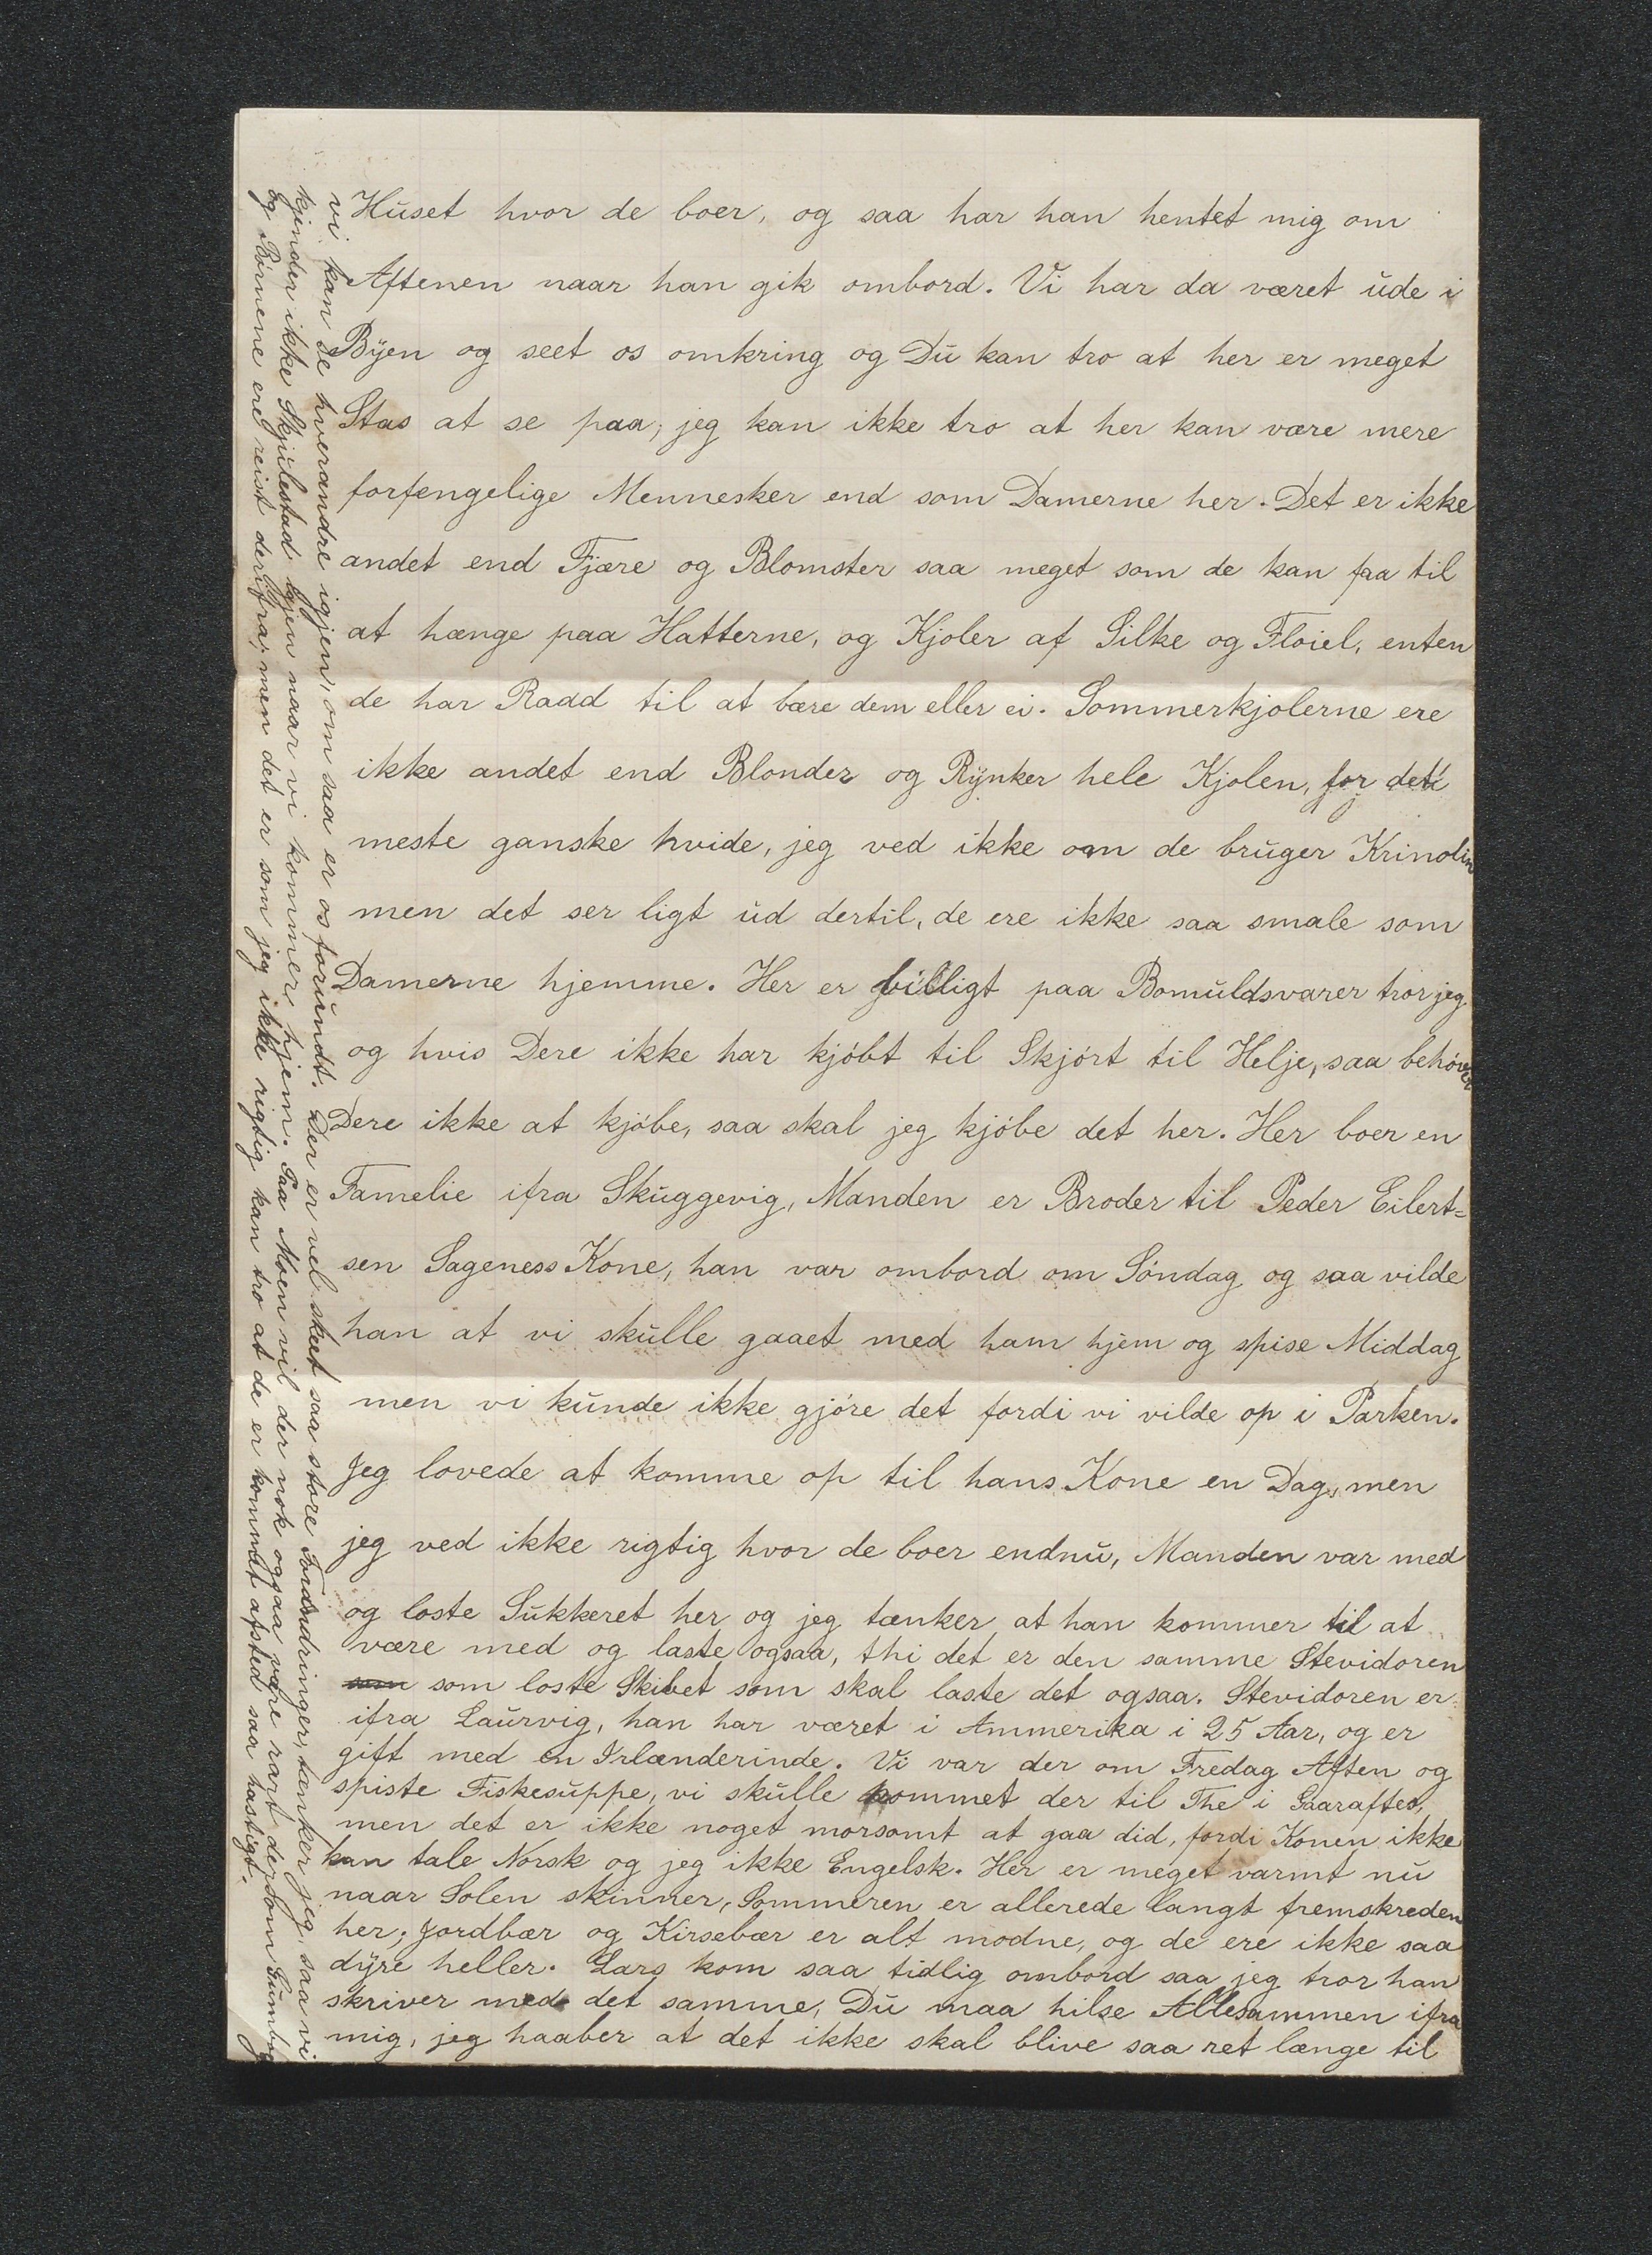 Huset hvor de boer, og saa har han hentet mig om
Aftenen naar han gik ombord. Vi har da været ude i
Byen og seet os omkring og Du kan tro at her er meget
Stas at se paa, jeg kan ikke tro at her kan være mere
forfengelige Mennesker end som Damerne her. Det er ikke
andet end Fjære og Blomster saa meget som de kan faa til
at hænge paa Hatterne, og Kjoler af Silke og Floiel, enten
de har Raad til at bære dem eller ei. Sommerkjolerne ere
ikke andet end Blonder og Rynker hele Kjolen, for det
meste ganske hvide, jeg ved ikke om de bruger Krinolin
men det ser ligt ud dertil, de ere ikke saa smale som
Damerne hjemme. Her er billigt paa Bomuldsvarer tror jeg
og hvis Dere ikke har kjóbt til Skjórt til Helje, saa behóver
Dere ikke at kjóbe, saa skal jeg kjóbe det her. Her boer en
Famelie ifra Skuggevig, Manden er Broder til Peder Eilert=
sen Sageness Kone, han var ombord om Sóndag og saa vilde
han at vi skulle gaaet med ham hjem og spise Middag
men vi kunde ikke gjóre det fordi vi vilde op i Parken.
Jeg lovede at komme op til hans Kone en Dag, men
jeg ved ikke rigtig hvor de boer endnu, Manden var med
og loste Sukkeret her og jeg tænker at han kommer til at
være med og laste ogsaa, thi det er den samme Stevidoren
som som loste Skibet som skal laste det ogsaa. Stevidoren er
ifra Laurvig, han har været i Ammerika i 25 Aar, og er
gift med en Irlænderinde. Vi var der om Fredag Aften og
spiste Fiskesuppe, vi skulle kommet der til The i Gaaraftes,
men det er ikke noget morsomt at gaa did, fordi Konen ikke
kan tale Norsk og jeg ikke Engelsk. Her er meget varmt nu
naar Solen skinner, Sommeren er allerede langt fremskreden
her; Jordbær og Kirsebær er alt modne, og de ere ikke saa
dyre heller. Lars kom saa tidlig ombord saa jeg tror han
skriver med det samme, Du maa hilse Allesammen ifra
mig, jeg haaber at det ikke skal blive saa ret længe til
vi kan se hverandre igjen, om saa er os forundt. Der er vel skeet saa store Forandringer, tænker jeg, saa vi
kjender ikke Skjulestad igjen naar vi kommer hjem. Paa Moen vil der nok ogsaa være rart dersom Gumba
og Börnene ere reist derifra, men det er som jeg ikke rigtig kan tro at de er kommet afsted saa hastigt.